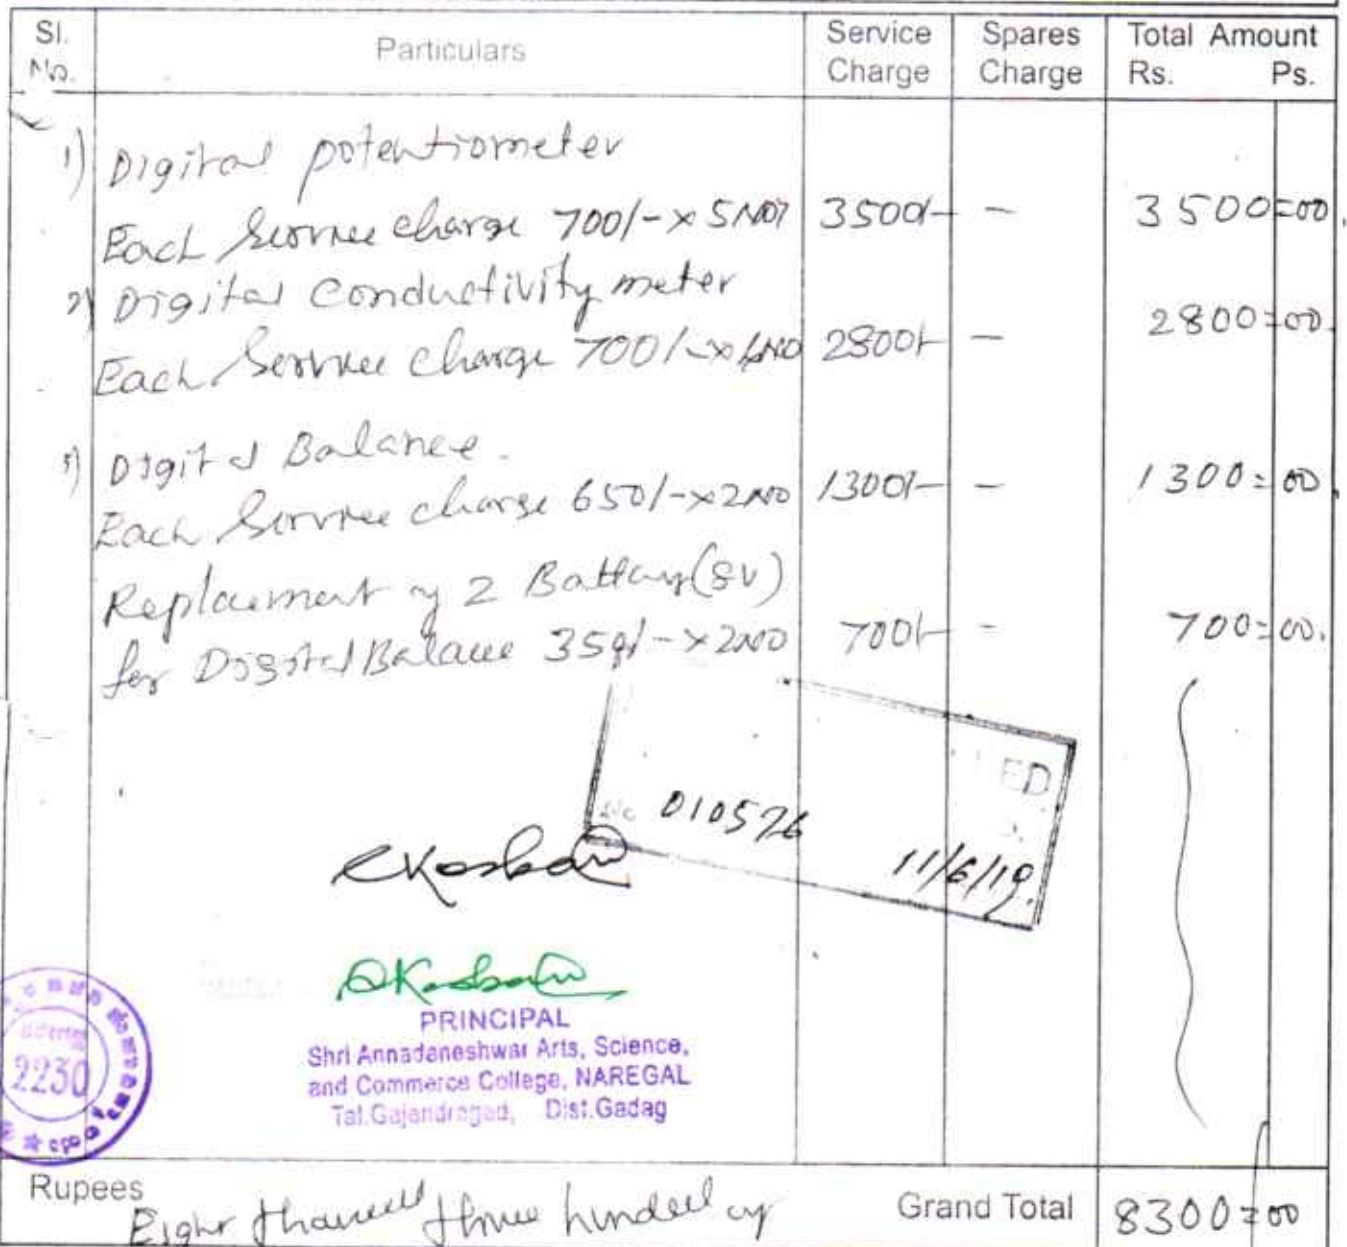 Sl. No. Particulars Service Charge Spares Charge Total Amount Rs. Ps.
1) Digital potentiometer
Each Service charge 700/- x 5NO 3500/- - 3500=00
2) Digital Conductivity meter
Each Service charge 700/- x 4NO 2800/- - 2800=00
3) Digital Balance.
Each Service charge 650/- x 2NO 1300/- - 1300=00
Replacement of 2 Battary (8V)
for Digital Balance 350/- x 2NO 700/- - 700=00.
ED
No 010576
11/6/19.
PRINCIPAL
Shri Annadaneshwar Arts, Science,
and Commerce College, NAREGAL
Tal.Gajendragad, Dist.Gadag
2230
Rupees Eight thousand three hundred Grand Total 8300=00